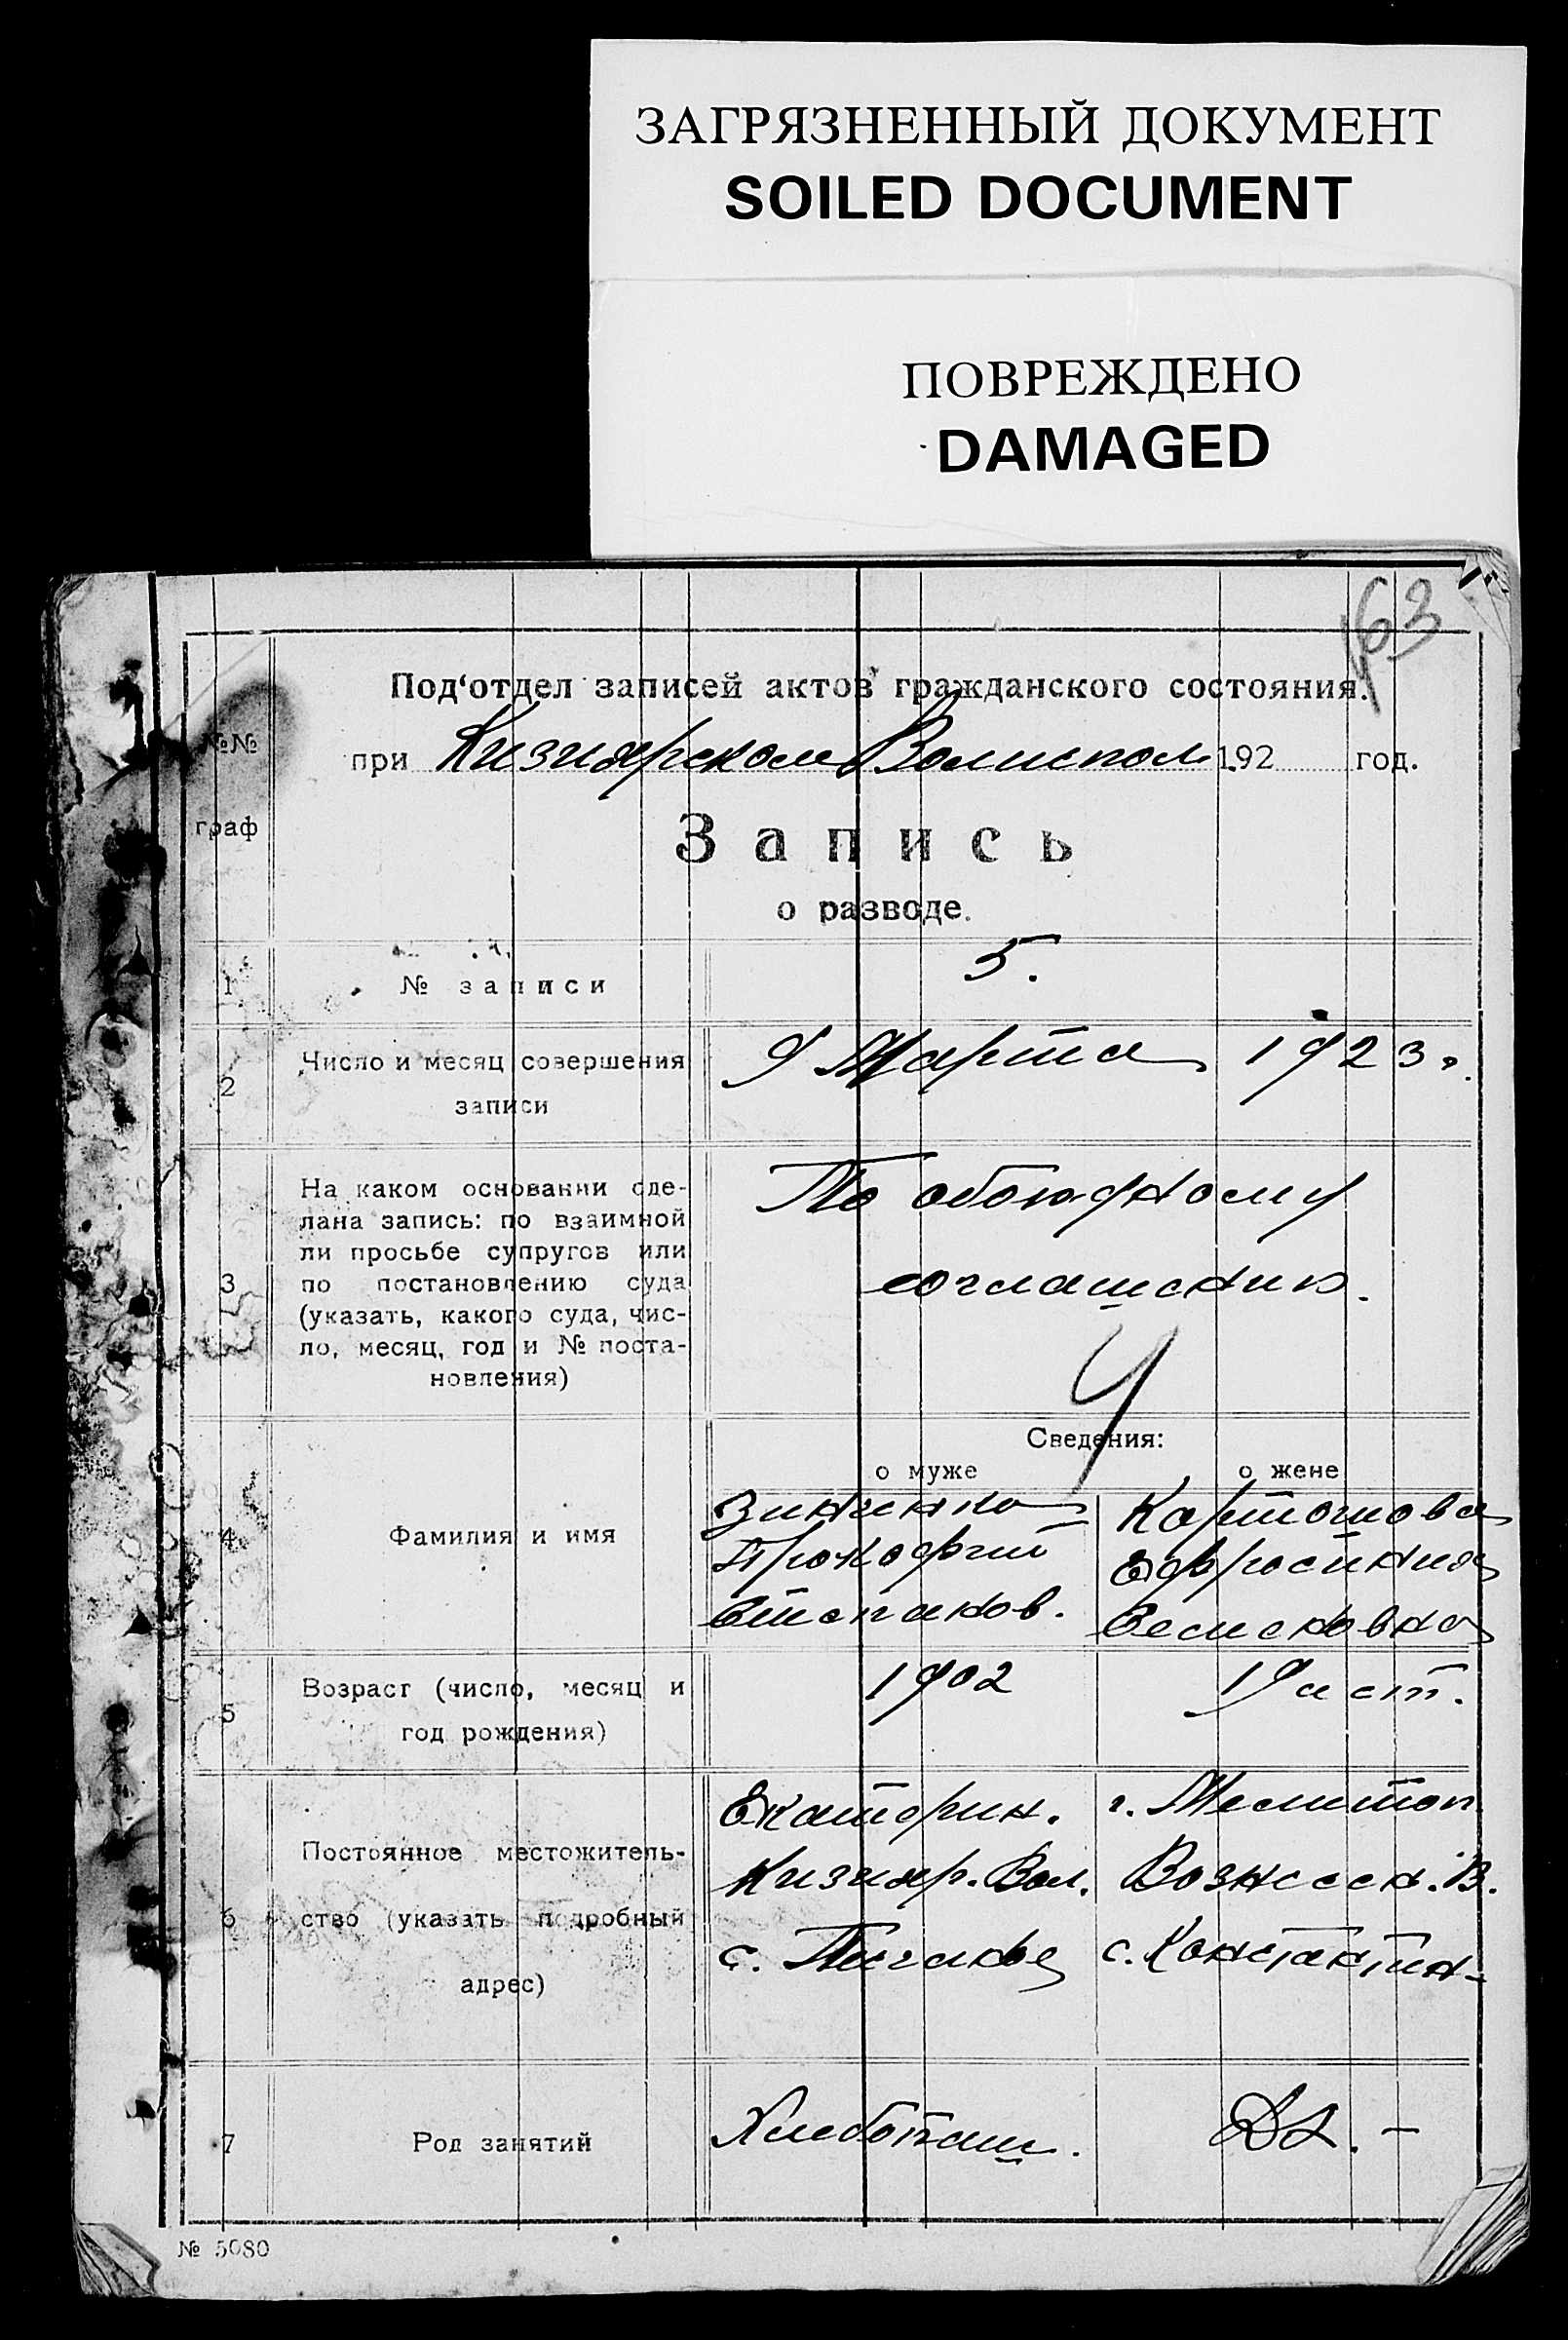 ЗАГРЯЗНЕННЫЙ ДОКУМЕНТ
SOILED DOCUMENT
ПОВРЕЖДЕНО
DAMAGED
163
Под‘отдел записей актов гражданского состояния.
№№ граф
при Кизиярском Волиспол. 192 год.
Запись
о разводе.
1 № записи 5.
2 Число и месяц совершения 9 Марта 1923 г.
записи
3 На каком основании сде-
лана запись: по взаимной
ли просьбе супругов или
по постановлению суда
(указать, какого суда, чис-
ло, месяц, год и № поста-
новления)
По обоюдному
соглашению.
Сведения:
о муже о жене
4 Фамилия и имя
Зинченко
Прокофий
Степанов.
Картошова
Ефросиния
Семеновна
5 Возраст (число, месяц и
год рождения)
1902
19 лет.
6 Постоянное местожитель-
ство (указать подробный
адрес)
Екатерин.
Кизияр. Вол.
с.
г. Мелитоп
Вознесен. В.
с. Константин-
7 Род занятий
Хлебопаш.
№ 5080